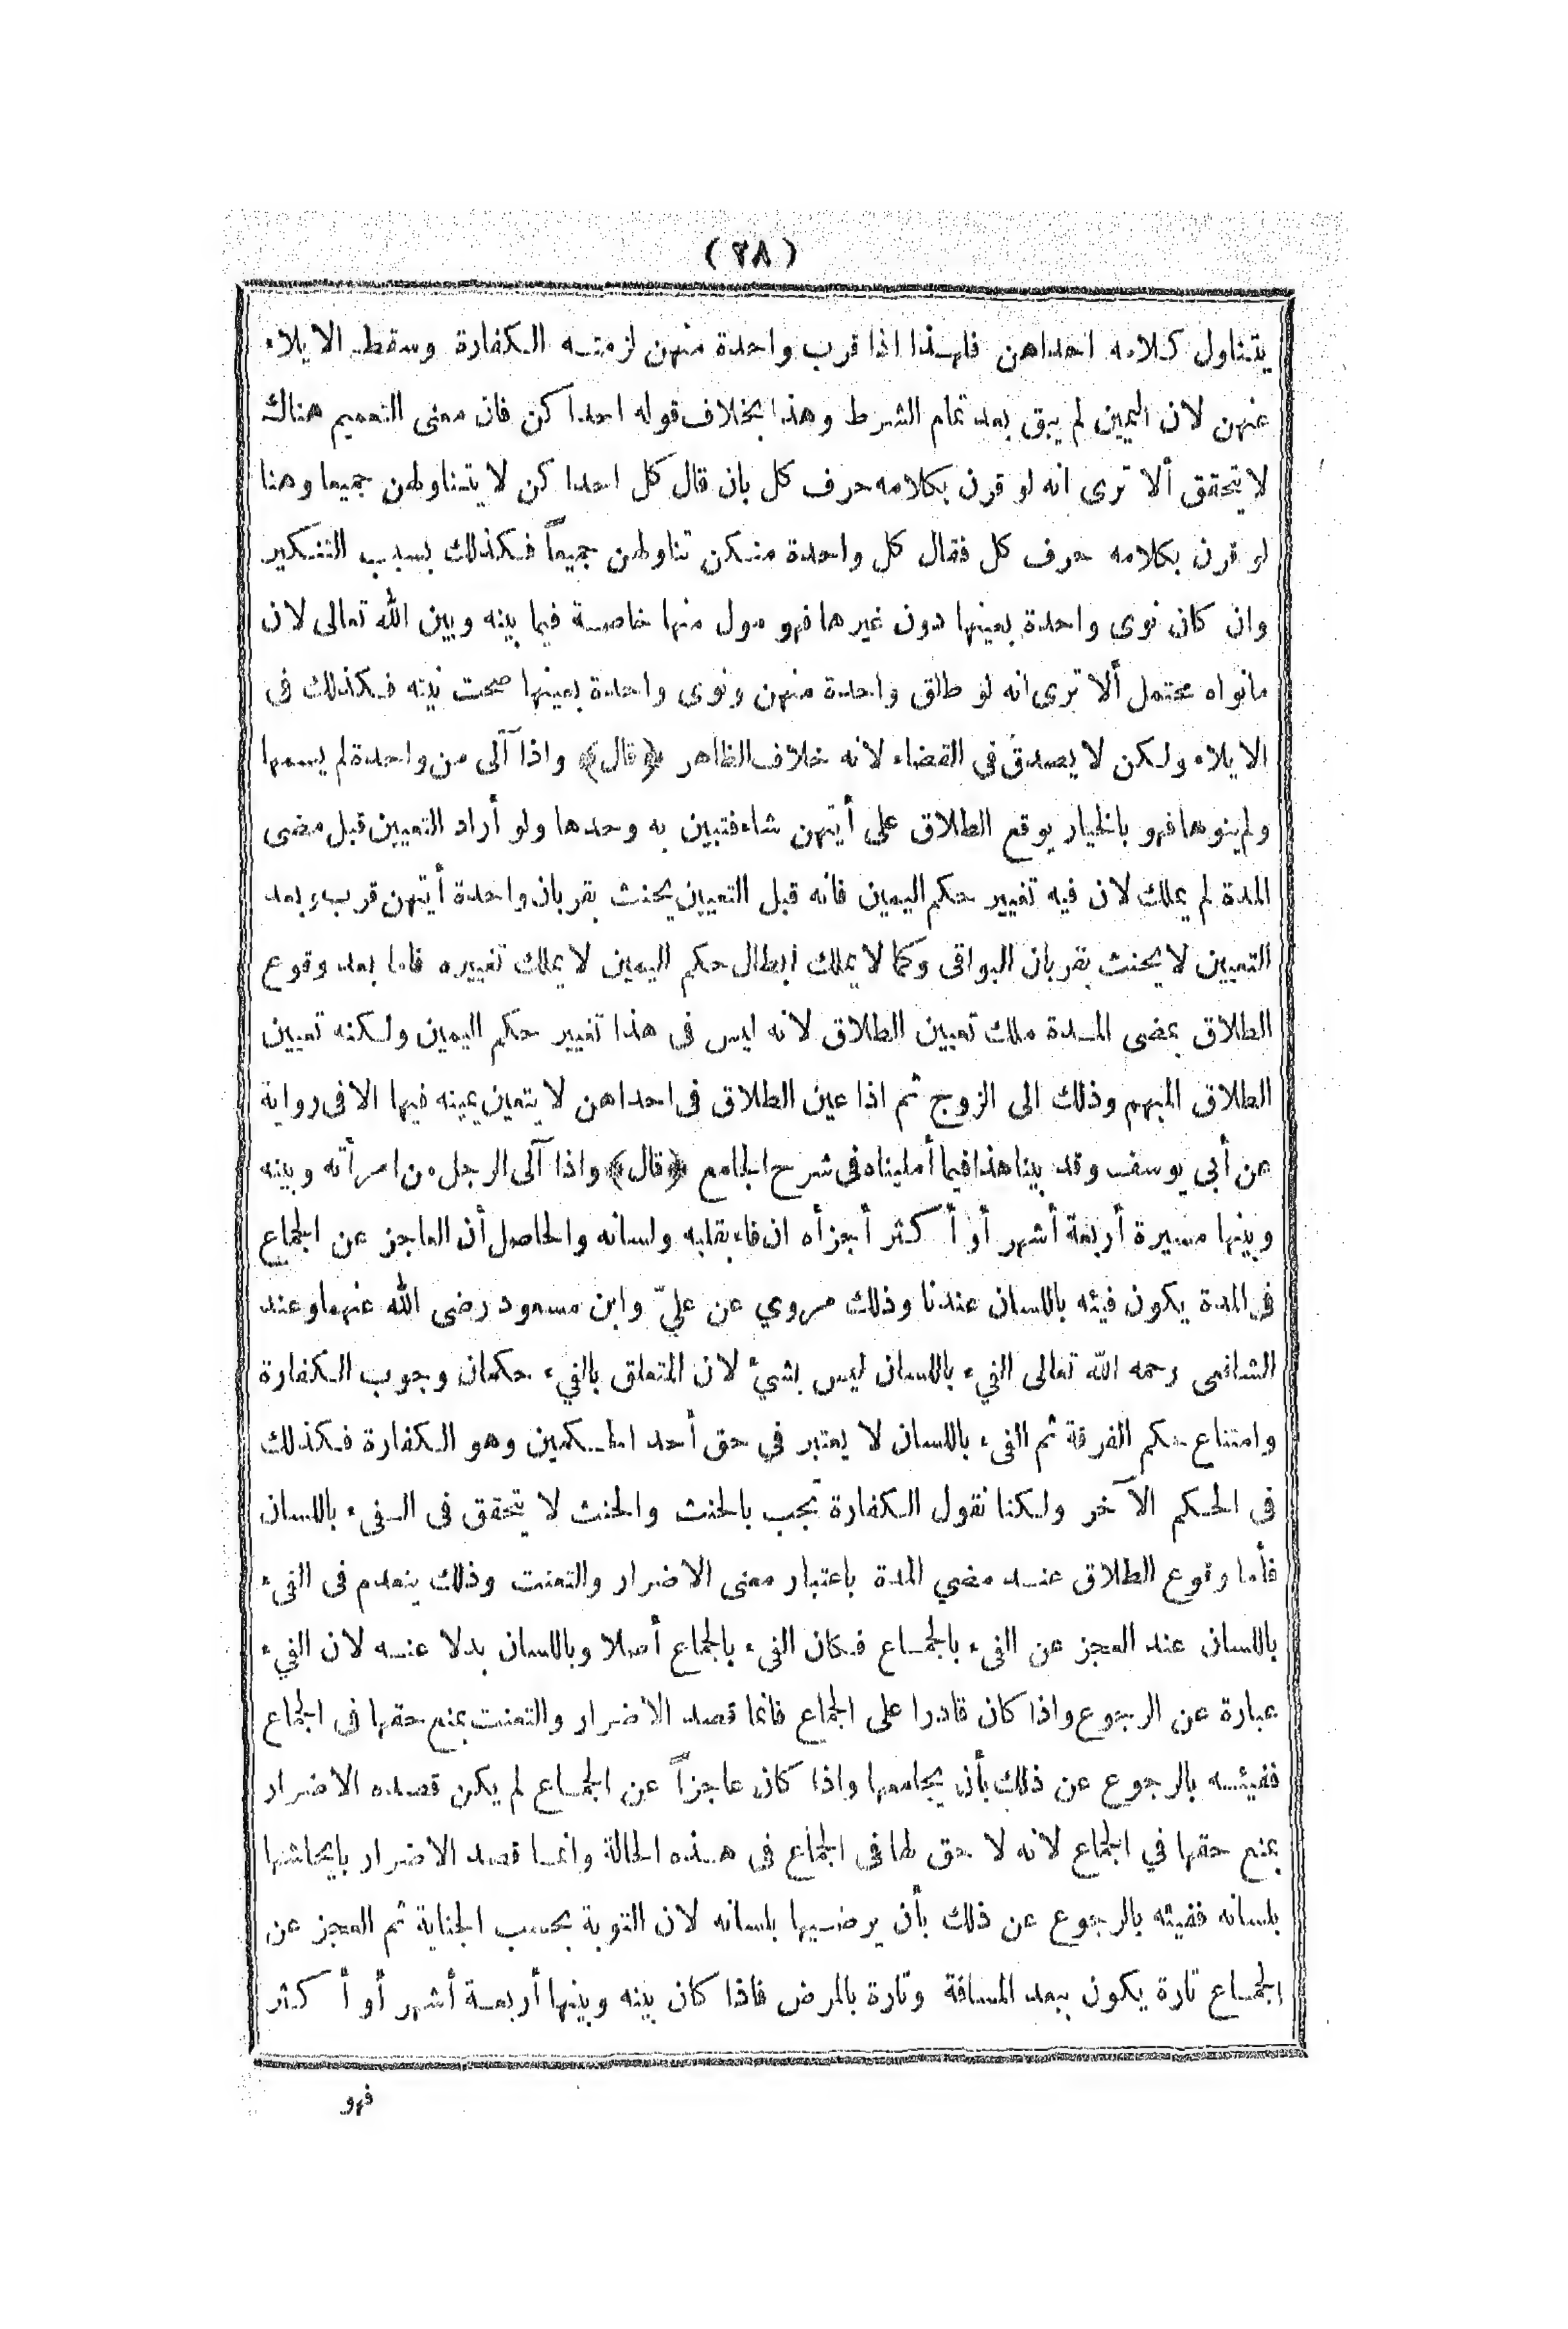 (٢٨)
يتناول كلامه احداهن فلهذا اذا قرب واحدة منهن لزمته الكفارة وسقط الايلاء
عنهن لان اليمين لم يبق بعد تمام الشرط وهذا بخلاف قوله احداكن فان معنى التعميم هناك
لا يتحقق ألا ترى انه لو قرن بكلامه حرف كل بان قال كل احداكن لا يتناولهن جميعا وهنا
لو قرن بكلامه حرف كل فقال كل واحدة منكن تناولهن جميعاً فكذلك بسبب التنكير
وان كان نوى واحدة بعينها دون غيرها فهو مول منها خاصة فيما بينه وبين الله تعالى لان
مانواه محتمل ألا ترى انه لو طلق واحدة منهن ونوى واحدة بعينها صحت نيته فكذلك فى
الايلاء ولكن لا يصدق فى القضاء لانه خلاف الظاهر ﴿قال﴾ واذا آلى من واحدة لم يسمها
ولم ينوها فهو بالخيار يوقع الطلاق على أيتهن شاء فتبين به وحدها ولو أراد التعيين قبل مضى
المدة لم يملك لان فيه تغيير حكم اليمين فانه قبل التعيين يحنث بقربان واحدة أيتهن قرب وبعد
التعيين لا يحنث بقربان البواقى وكما لا يملك ابطال حكم اليمين لا يملك تغييره فاما بعد وقوع
الطلاق بمضى المدة ملك تعيين الطلاق لانه ليس فى هذا تغيير حكم اليمين ولكنه تعيين
الطلاق المبهم وذلك الى الزوج ثم اذا عين الطلاق فى احداهن لا يتعين يمينه فيها الا فى رواية
عن أبى يوسف وقد بينا هذا فيما أمليناه فى شرح الجامع ﴿قال﴾ واذا آلى الرجل من امرأته وبينه
وبينها مسيرة أربعة أشهر أو أكثر أجزأه ان فاء بقلبه ولسانه والحاصل أن العاجز عن الجماع
فى المدة يكون فيئه باللسان عندنا وذلك مروي عن عليّ وابن مسعود رضى الله عنهما وعند
الشافعى رحمه الله تعالى الفيء باللسان ليس بشيء لان المتعلق بالفيء حكمان وجوب الكفارة
وامتناع حكم الفرقة ثم الفىء باللسان لا يعتبر في حق أحد الحكمين وهو الكفارة فكذلك
فى الحكم الآخر ولكنا نقول الكفارة تجب بالحنث والحنث لا يتحقق فى الفىء باللسان
فأما وقوع الطلاق عند مضي المدة باعتبار معنى الاضرار والتعنت وذلك ينعدم فى الفىء
باللسان عند العجز عن الفىء بالجماع فكان الفىء بالجماع أصلا وباللسان بدلا عنه لان الفيء
عبارة عن الرجوع واذا كان قادرا على الجماع فانما قصد الاضرار والتعنت بمنع حقها فى الجماع
ففيئه بالرجوع عن ذلك بأن يجامعها واذا كان عاجزاً عن الجماع لم يكن قصده الاضرار
بمنع حقها في الجماع لانه لا حق لها فى الجماع فى هذه الحالة وانما قصد الاضرار بايحاشها
بلسانه ففيئه بالرجوع عن ذلك بأن يرضيها بلسانه لان التوبة بحسب الجناية ثم العجز عن
الجماع تارة يكون ببعد المسافة وتارة بالمرض فاذا كان بينه وبينها أربعة أشهر أو أكثر
فهو